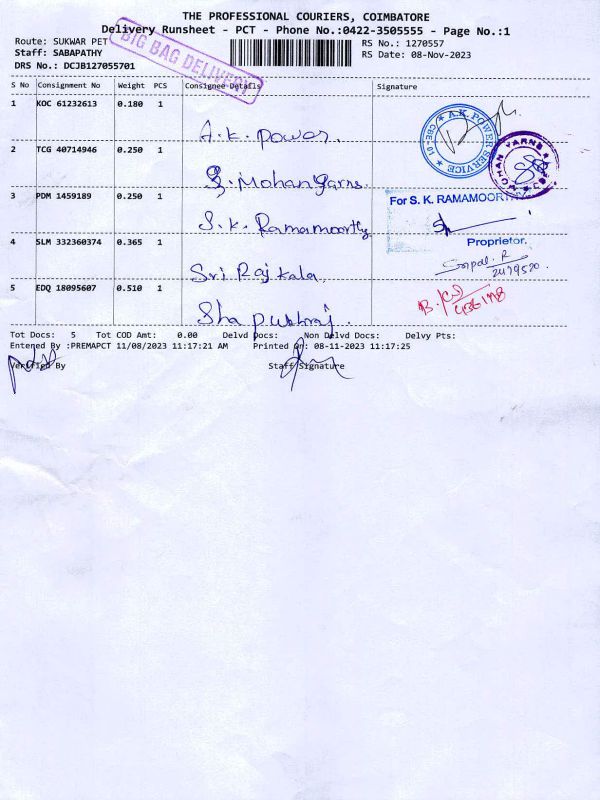 THE PROFESSIONAL COURIERS, COIMBATORE
Delivery Runsheet - PCT - Phone No.:0422-3505555 - Page No.:1
Route: SUKWAR PET
RS No.: 1270557
Staff: SABAPATHY
RS Date: 08-Nov-2023
DRS No.: DCJB127055701
BIG BAG DELIVERY
S No Consignment No Weight PCS Consignee Details Signature
1 KOC 61232613 0.180 1
A.K. Power
A.K. POWER SERVICE
2 TCG 40714946 0.250 1
S. Mohan Yarns
MOHAN YARNS
3 PDM 1459189 0.250 1
For S. K. RAMAMOORTHY
S.K. Ramamoorthy
Proprietor.
4 SLM 332360374 0.365 1
Sri Raj Kala
Gopal. R
2479520
5 EDQ 18095607 0.510 1
Sha Pushraj
Tot Docs: 5 Tot COD Amt: 0.00 Delvd Docs: Non Delvd Docs: Delvy Pts:
Entened By :PREMAPCT 11/08/2023 11:17:21 AM Printed On: 08-11-2023 11:17:25
Verified By Staff Signature